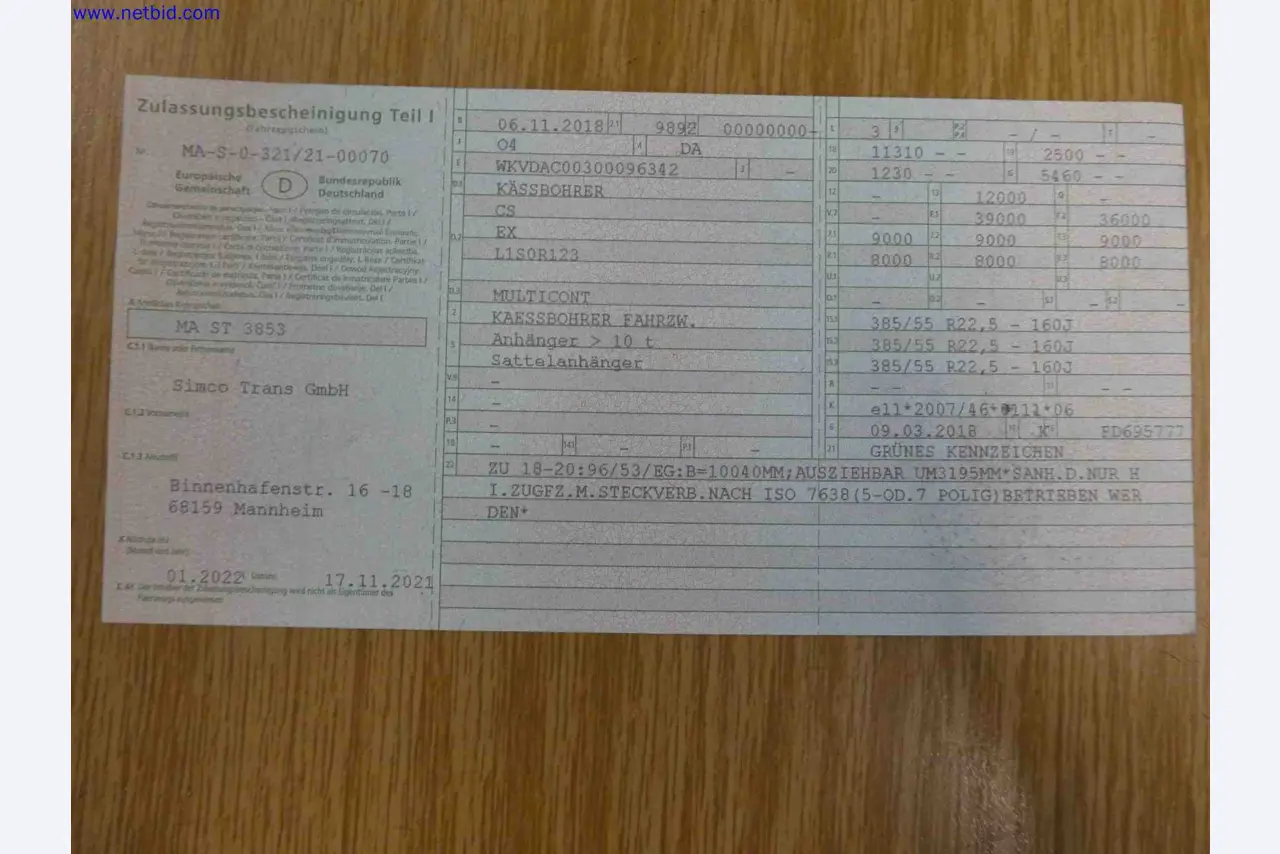 www.netbid.com
Zulassungsbescheinigung Teil I
(Fahrzeugschein)
Nr. MA-S-0-321/21-00070
Europäische Gemeinschaft D Bundesrepublik Deutschland
MA ST 3853
C.1.1 Name oder Firmenname
Simco Trans GmbH
C.1.2 Vorname(n)
C.1.3 Anschrift
Binnenhafenstr. 16 -18
68159 Mannheim
01.2022 Datum 17.11.2021
B 06.11.2018 2.1 9892 00000000-
J 04 4 DA
E WKVDAC00300096342 3 -
D.1 KÄSSBOHRER
CS
D.2 EX
L1S0R123
D.3 MULTICONT
2 KAESSBOHRER FAHRZW.
5 Anhänger > 10 t
Sattelanhänger
V.9 -
14 -
P.3 -
10 - 14.1 - P.1 -
22 ZU 18-20:96/53/EG:B=10040MM;AUSZIEHBAR UM3195MM*SANH.D.NUR H
I.ZUGFZ.M.STECKVERB.NACH ISO 7638(5-OD.7 POLIG)BETRIEBEN WER
DEN*
L 3 9 P.2 P.4 - / - T -
18 11310 - - 19 2500 - -
20 1230 - - G 5460 - -
12 - 13 12000 Q -
V.7 - F.1 39000 F.2 36000
7.1 9000 7.2 9000 7.3 9000
8.1 8000 8.2 8000 8.3 8000
U.1 U.2 U.3
O.1 - O.2 - S.1 - S.2 -
15.1 385/55 R22,5 - 160J
15.2 385/55 R22,5 - 160J
15.3 385/55 R22,5 - 160J
R - - 11 - -
K e11*2007/46*0111*06
6 09.03.2018 17 K 16 FD695777
21 GRÜNES KENNZEICHEN